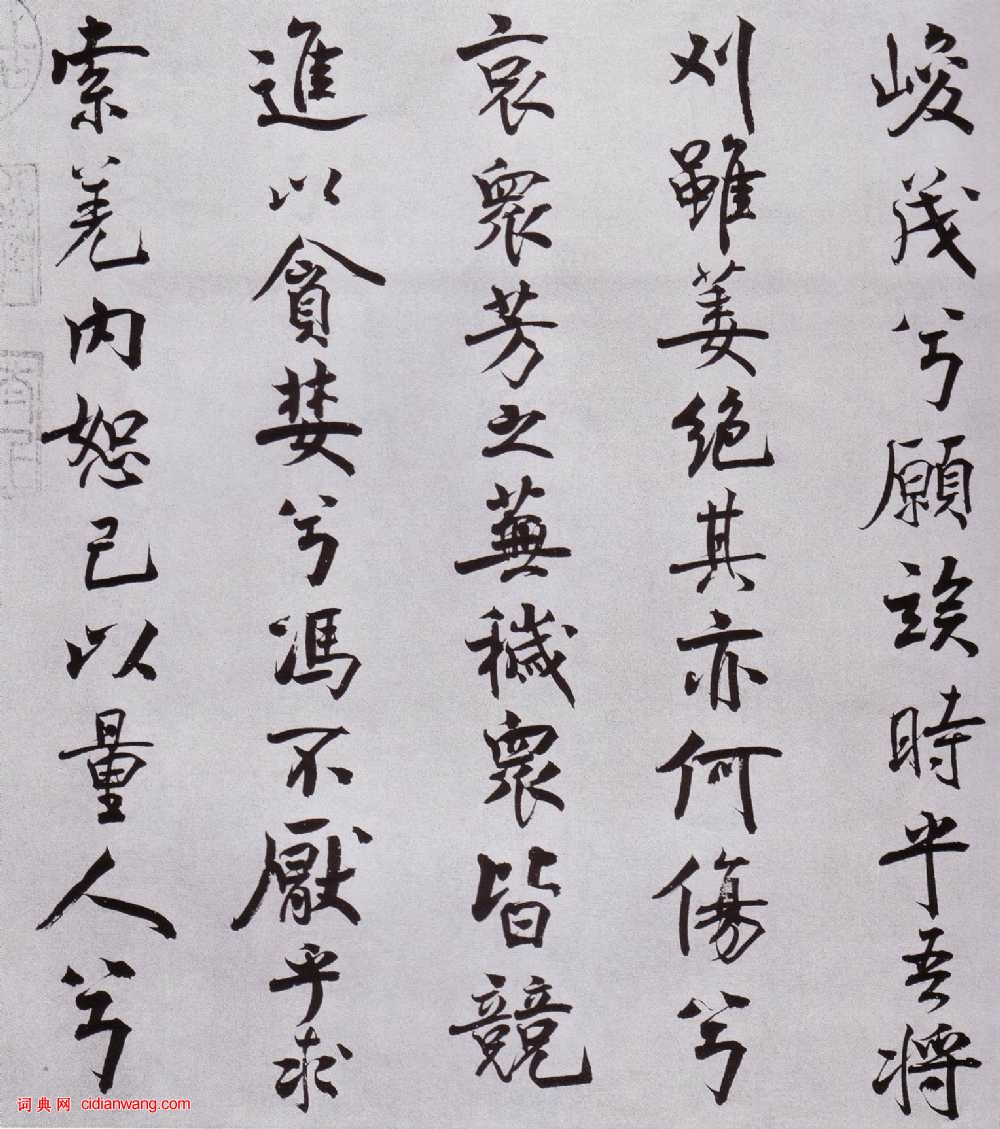 峻茂兮願竢時乎吾将
刈雖萎絶其亦何傷兮
哀衆芳之蕪穢衆皆競
進以貪婪兮馮不厭乎求
索羌内恕己以量人兮
词典网 cidianwang.com